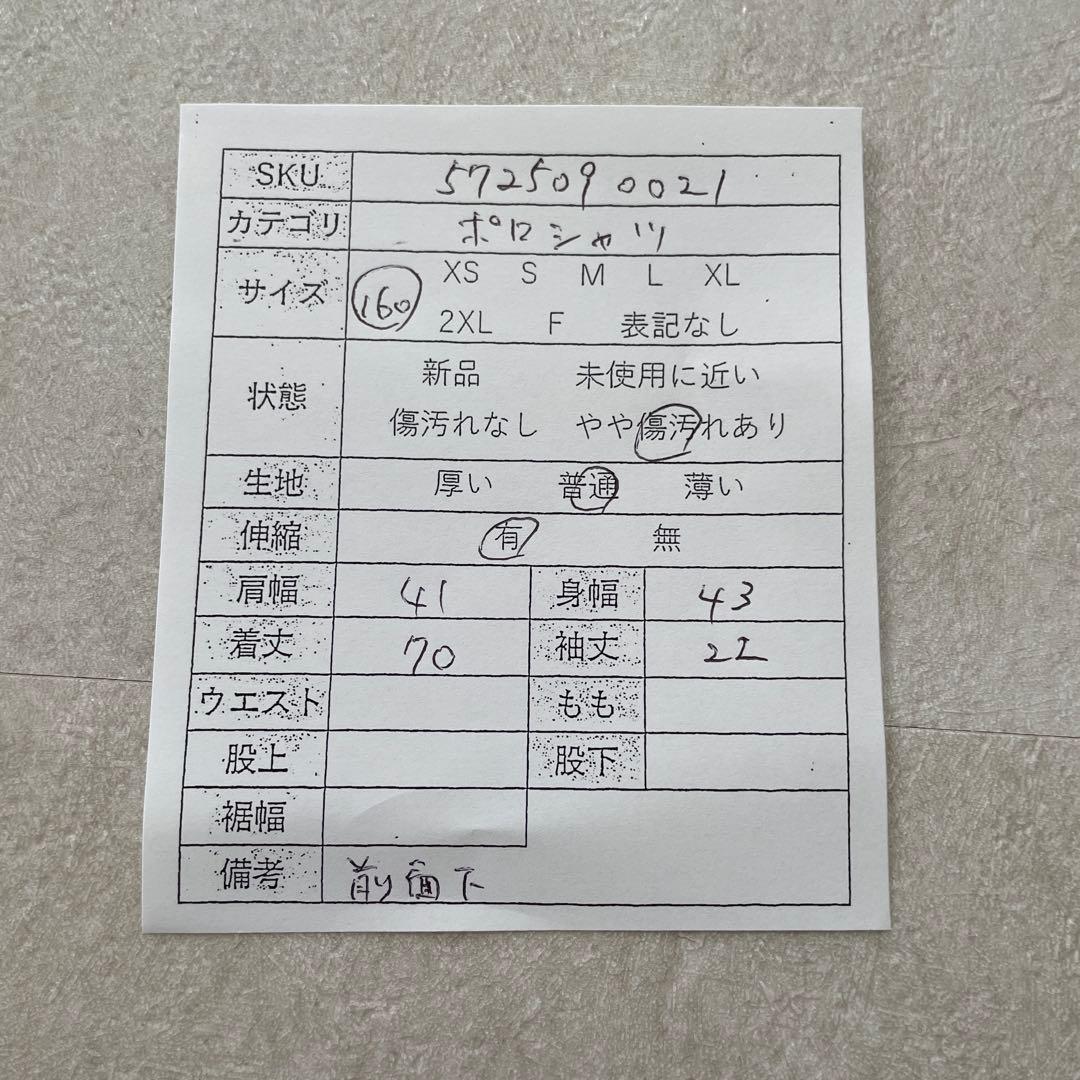 SKU 5725090021
カテゴリ ポロシャツ
サイズ 160 XS S M L XL
2XL F 表記なし
状態 新品 未使用に近い
傷汚れなし やや傷汚れあり
生地 厚い 普通 薄い
伸縮 有 無
肩幅 41 身幅 43
着丈 70 袖丈
ウエスト もも
股上 股下
裾幅
備考 前 下